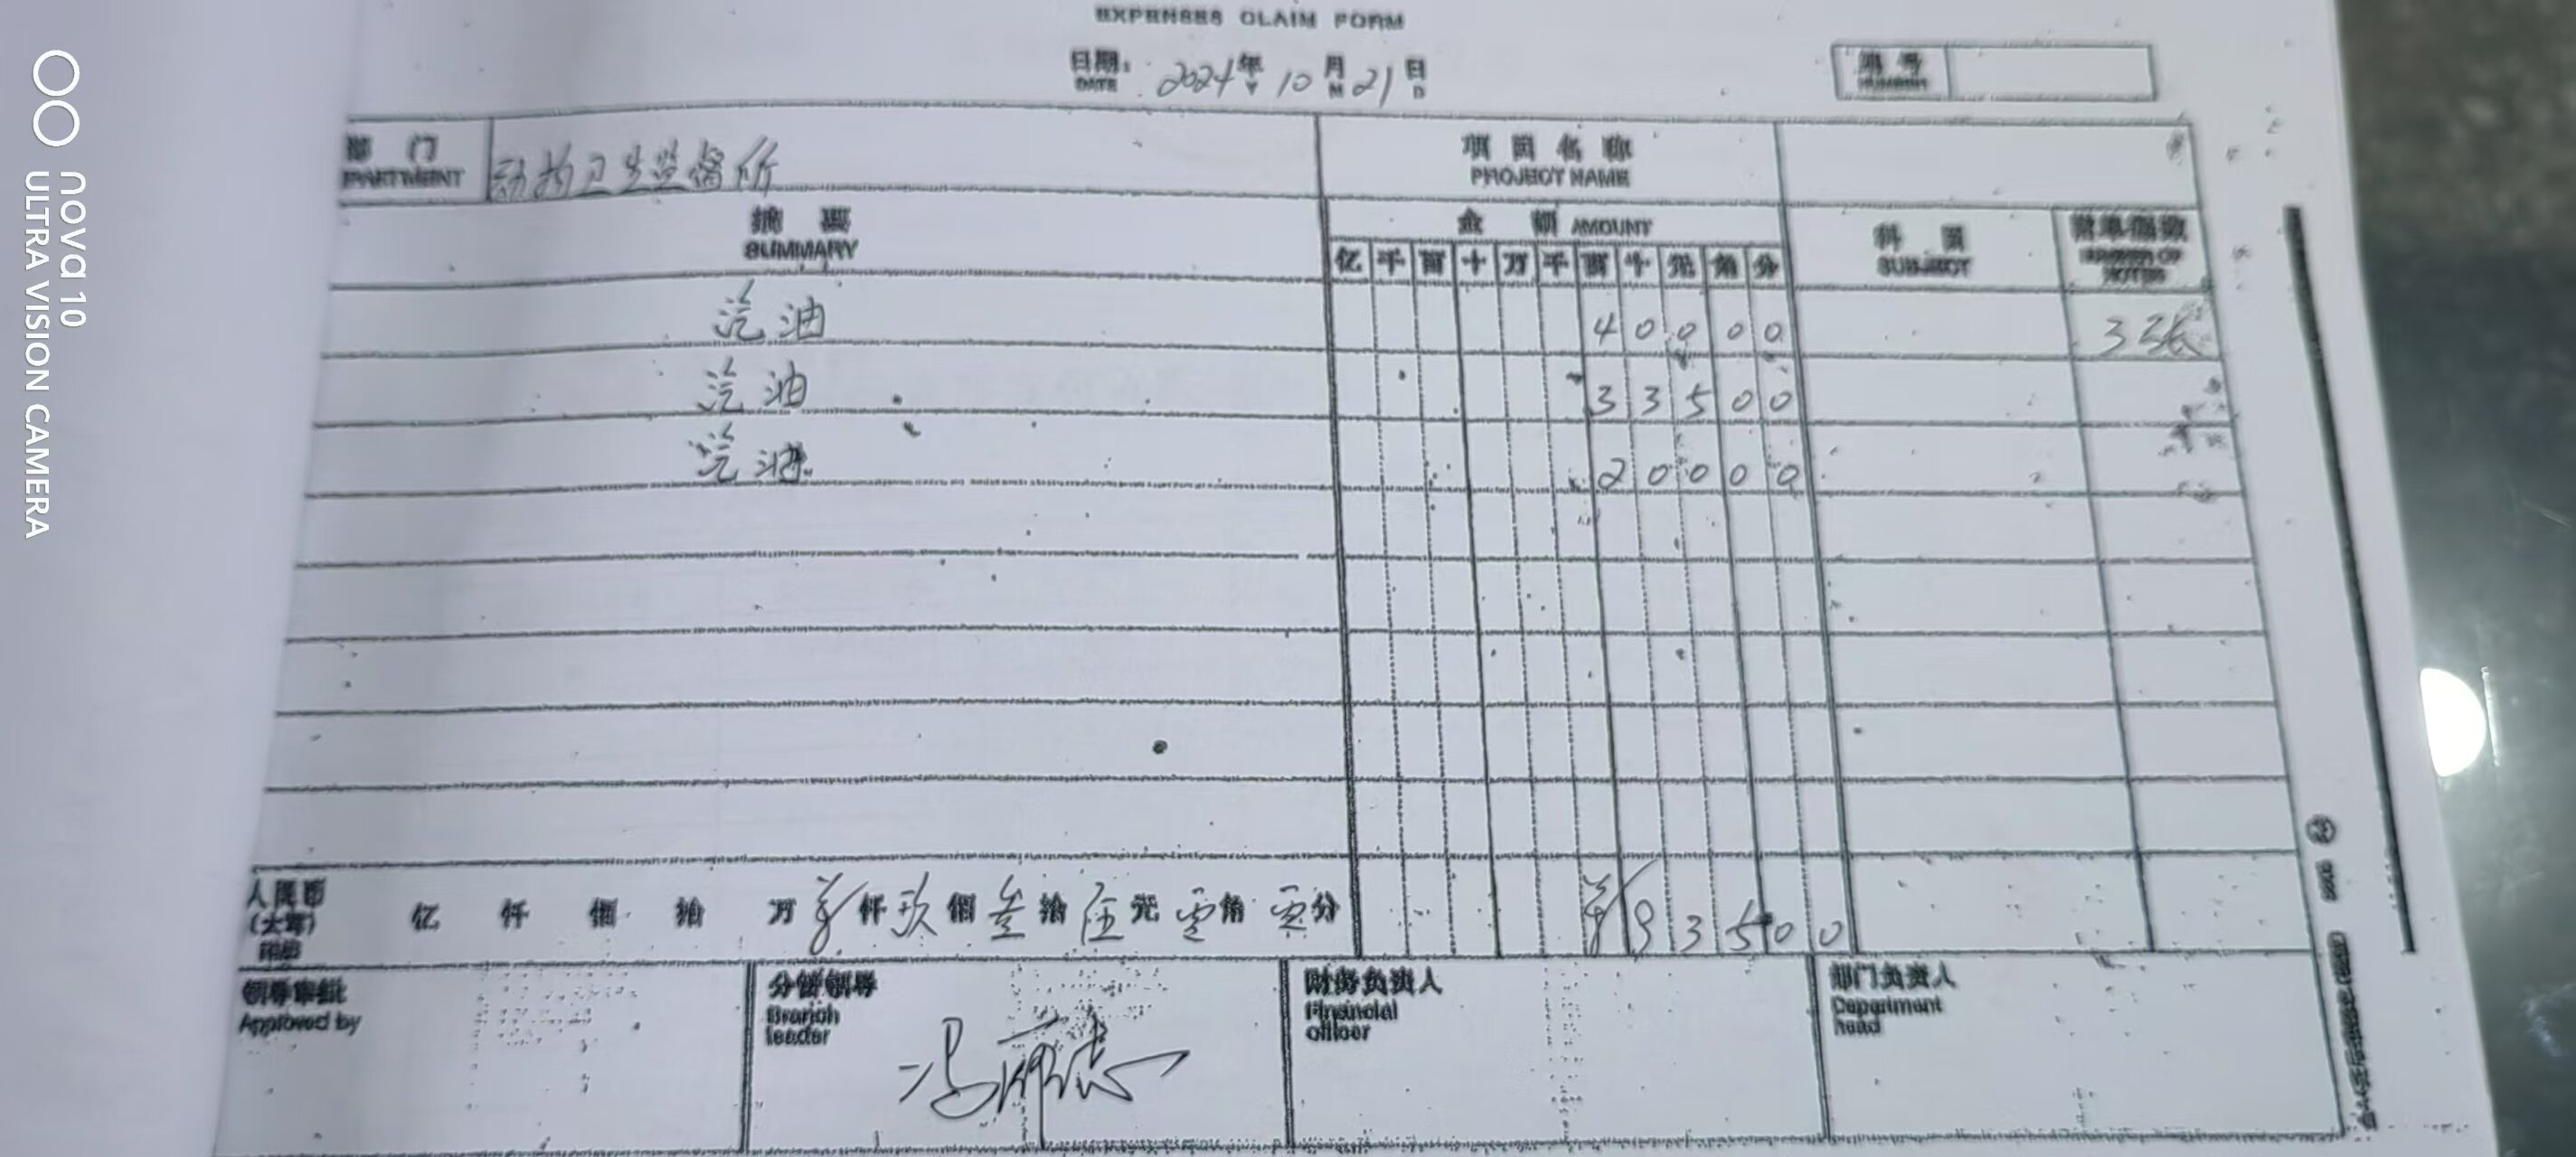 EXPENSES CLAIM FORM
日期: 2024年 10月 21日
DATE Y M D
编号
NUMBER
部 门 动物卫生监督所
PARTMENT
项目名称
PROJECT NAME
摘 要
SUMMARY
金 额 AMOUNT
亿 千 百 十 万 千 百 十 元 角 分
科 目
SUBJECT
汽油 4 0 0 0 0 3张
汽油 3 3 5 0 0
汽油 2 0 0 0 0
人民币
(大写)
亿 仟 佰 拾 万 ¥仟 玖佰 叁拾 伍元 零角 零分 ¥ 9 3 5 0 0
领导审批
Approved by
分管领导
Branch
leader
财务负责人
Financial
officer
部门负责人
Department
head
nova 10
ULTRA VISION CAMERA